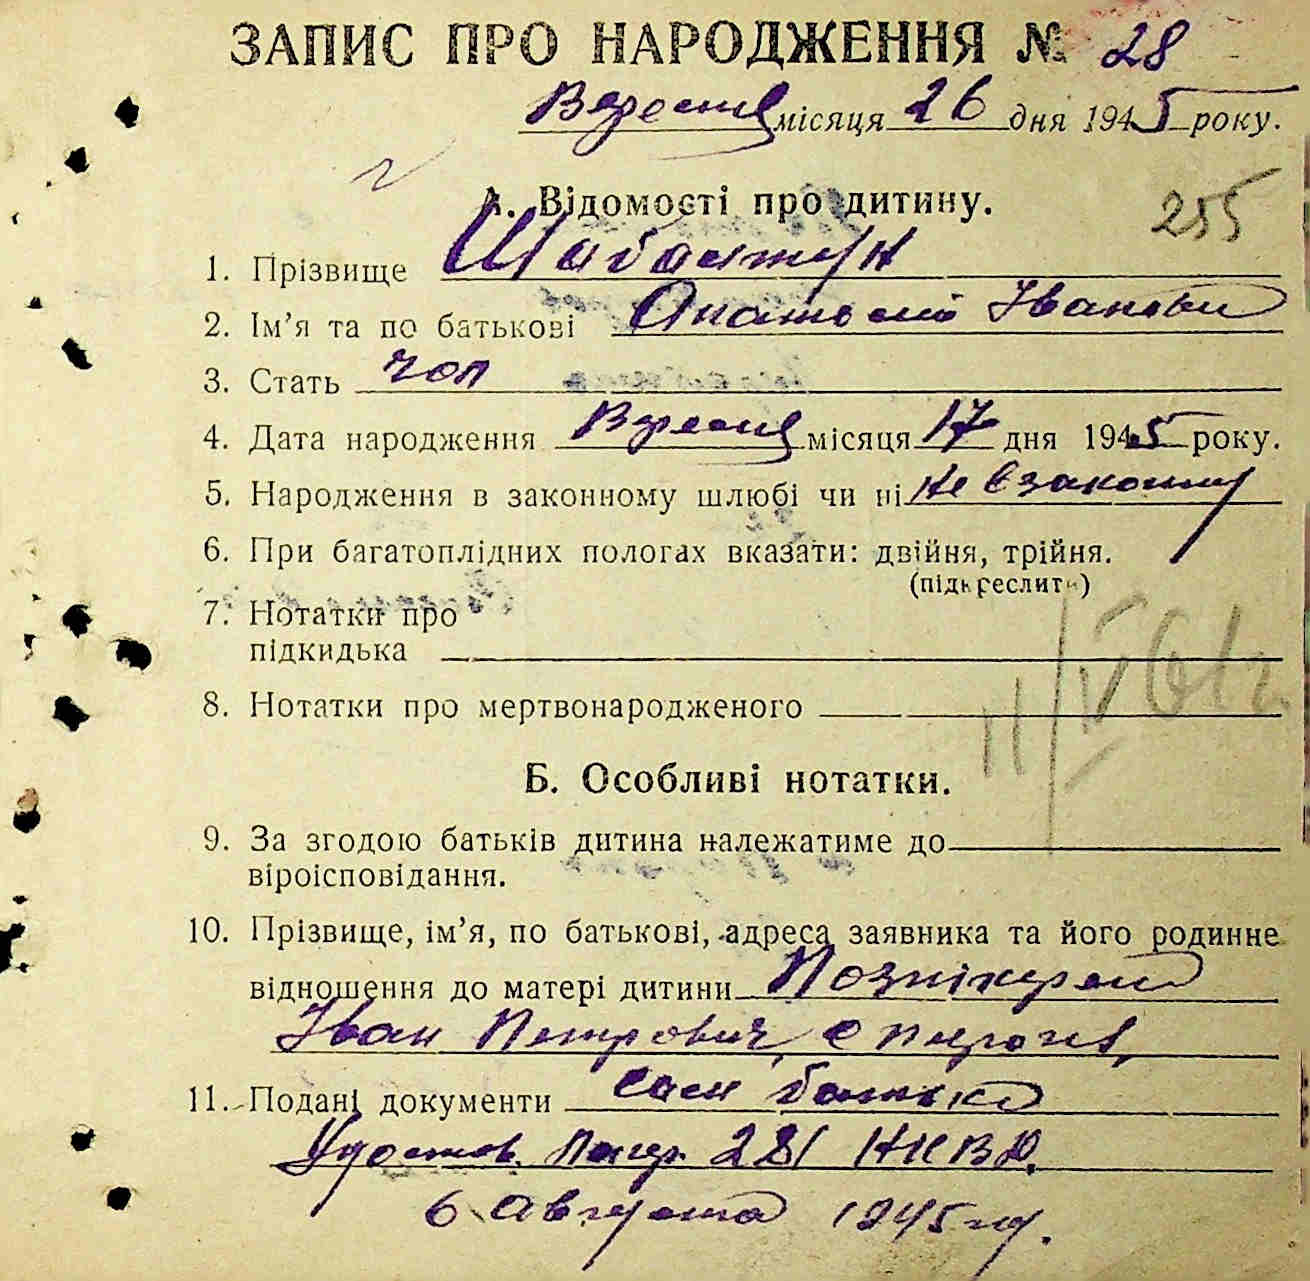 ЗАПИС ПРО НАРОДЖЕННЯ № 28
Вересня місяця 26 дня 1945 року.
А. Відомості про дитину.
255
1. Прізвище Шабастун
2. Ім’я та по батькові Анатолій Іванови
3. Стать чол
4. Дата народження Вересня місяця 17 дня 1945 року.
5. Народження в законному шлюбі чи ні не в законному
6. При багатоплідних пологах вказати: двійня, трійня.
(підкреслити)
7. Нотатки про
підкидька
8. Нотатки про мертвонародженого
Б. Особливі нотатки.
9. За згодою батьків дитина належатиме до
віроісповідання.
10. Прізвище, ім’я, по батькові, адреса заявника та його родинне
відношення до матері дитини
Іван Петрович, с
11. Подані документи сам батько
Удостов. лагер. 281 НКВД.
6 Августа 1945 г.